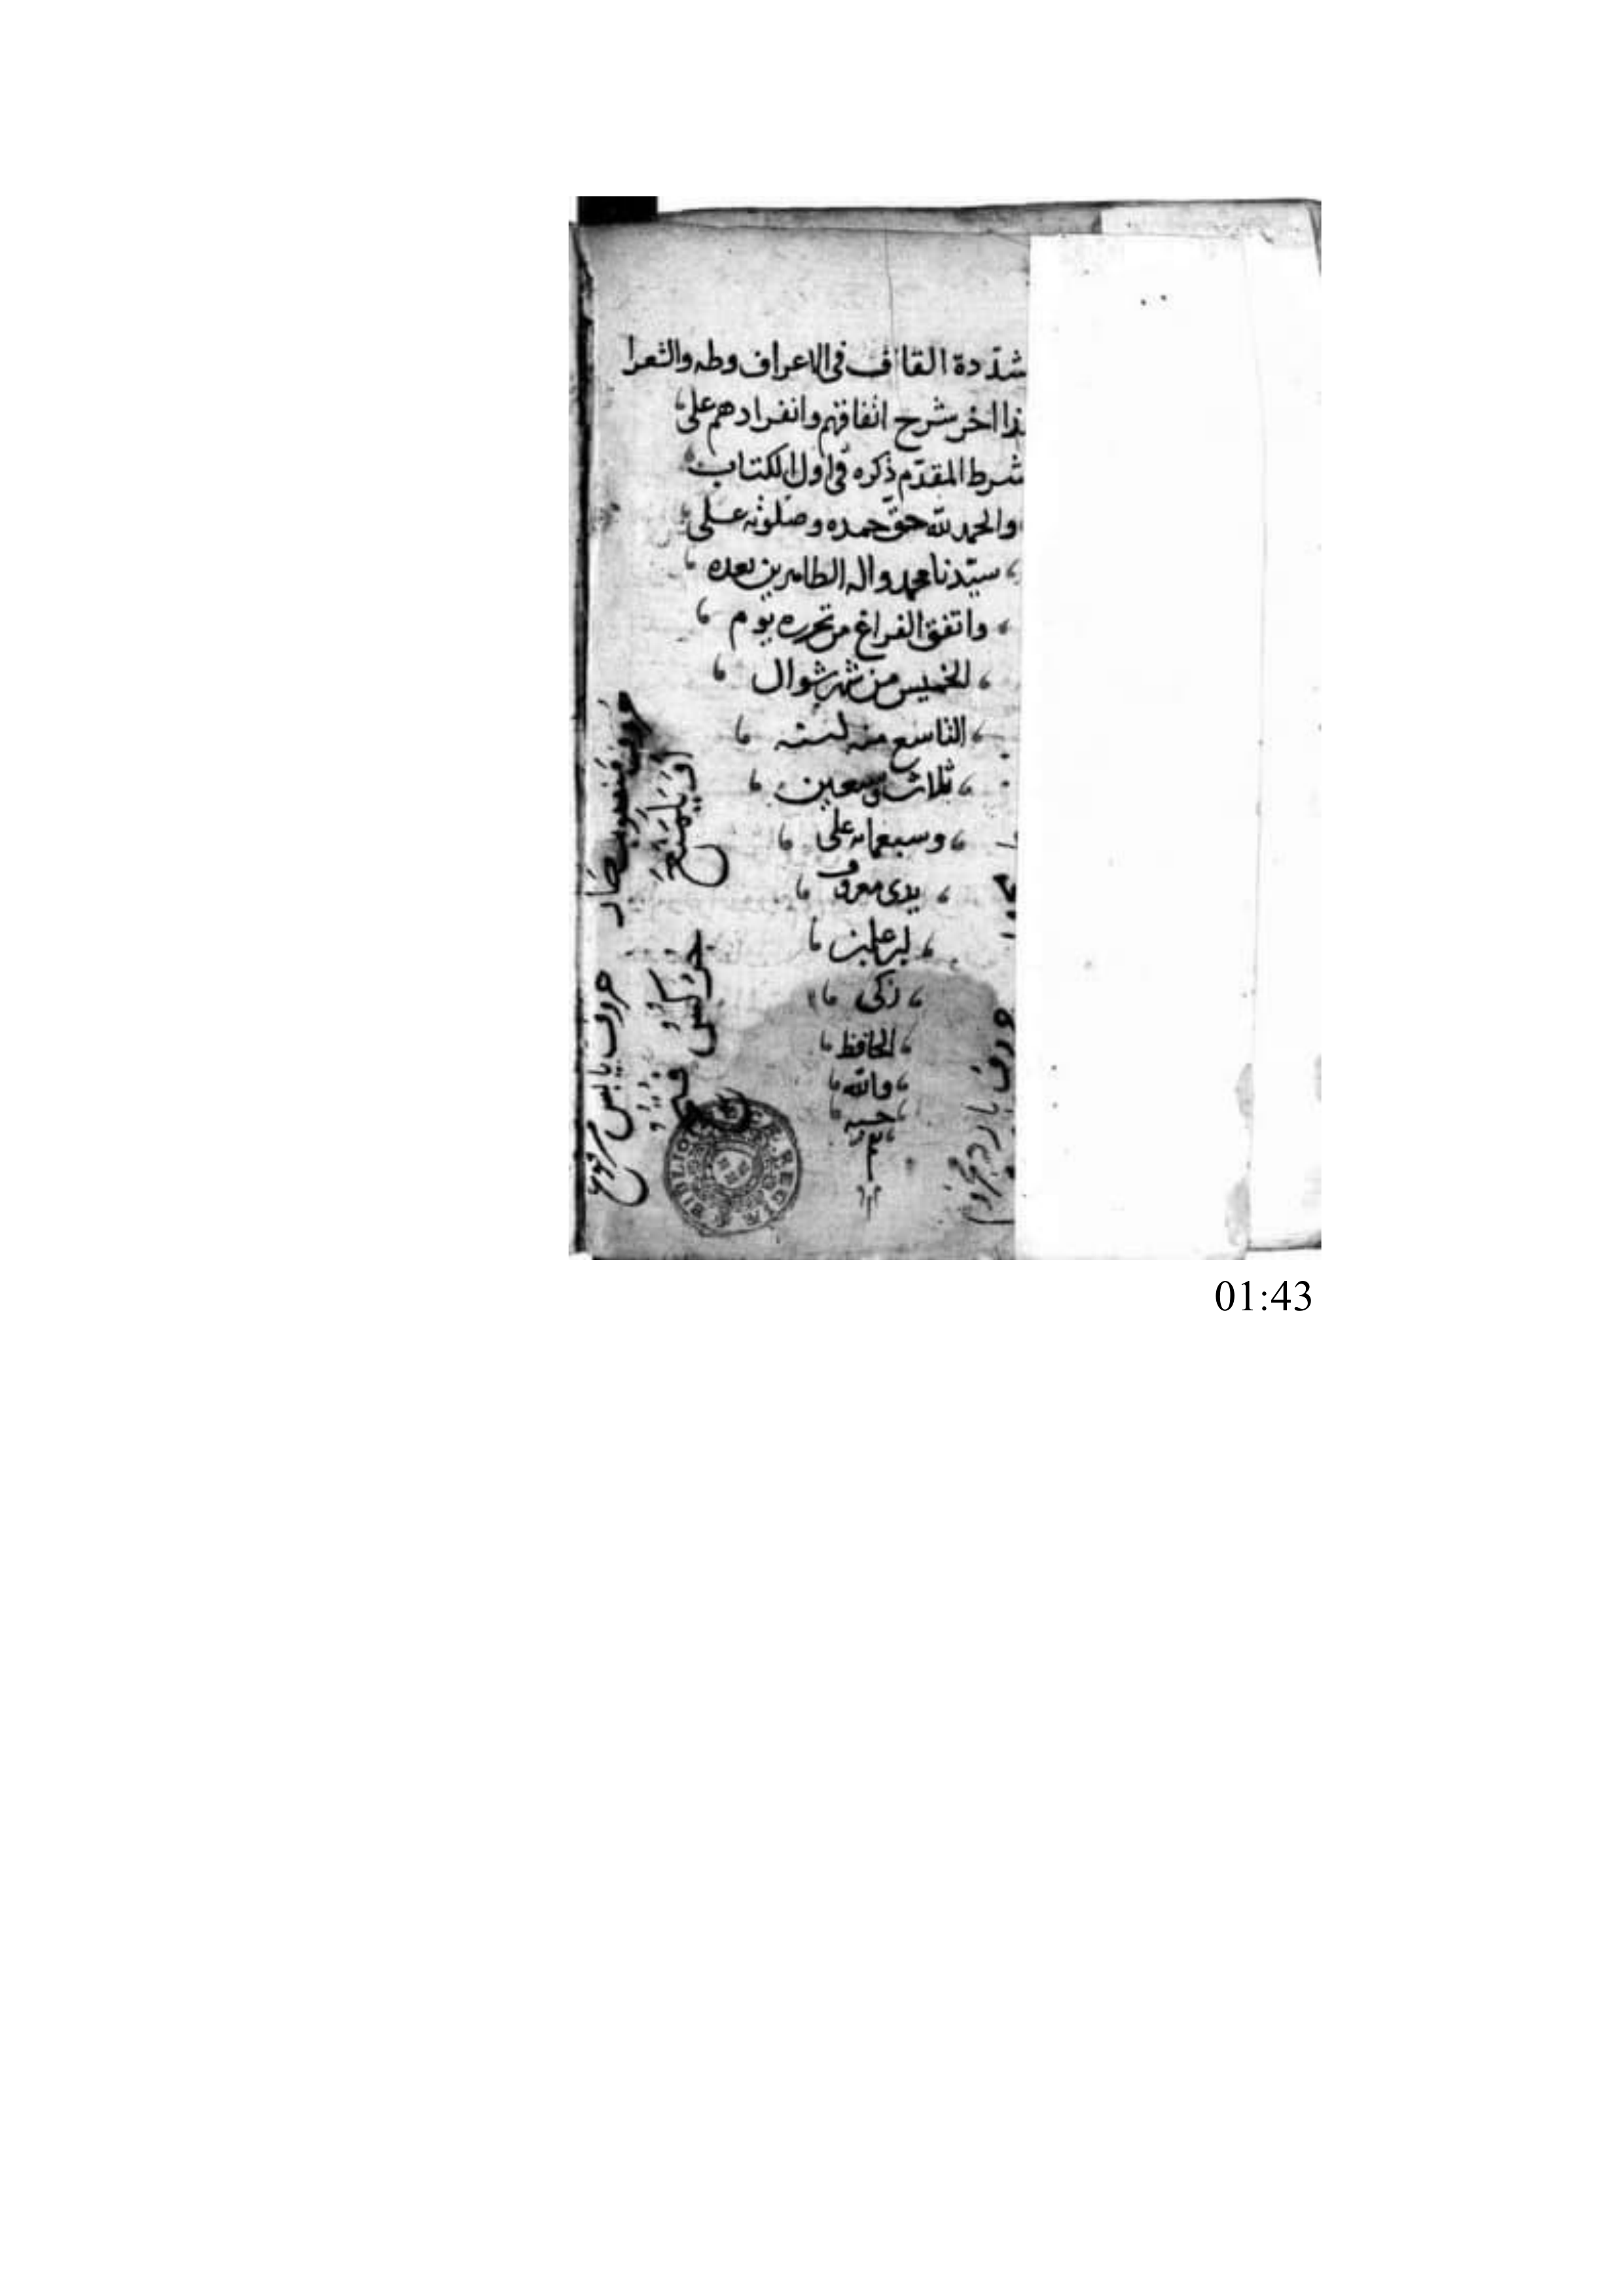 شدّدة القاف في الاعراف وطه والشعرا
ذا اخر شرح اتفاقهم وانفرادهم على
شرط المقدّم ذكره في اول الكتاب
والحمد لله حقّ حمده وصلوته على
سيّدنا محمد واله الطاهرين بعده
واتفق الفراغ من تحرره يوم
الخميس من شهر شوال
التاسع منه لسنة
ثلاث وسبعين
وسبعمائه على
يدي معروف
زكي
الحافظ
والله
حسبه
حروف
حروف يابس
حروف
BIBLIOTHECÆ REGIÆ
01:43